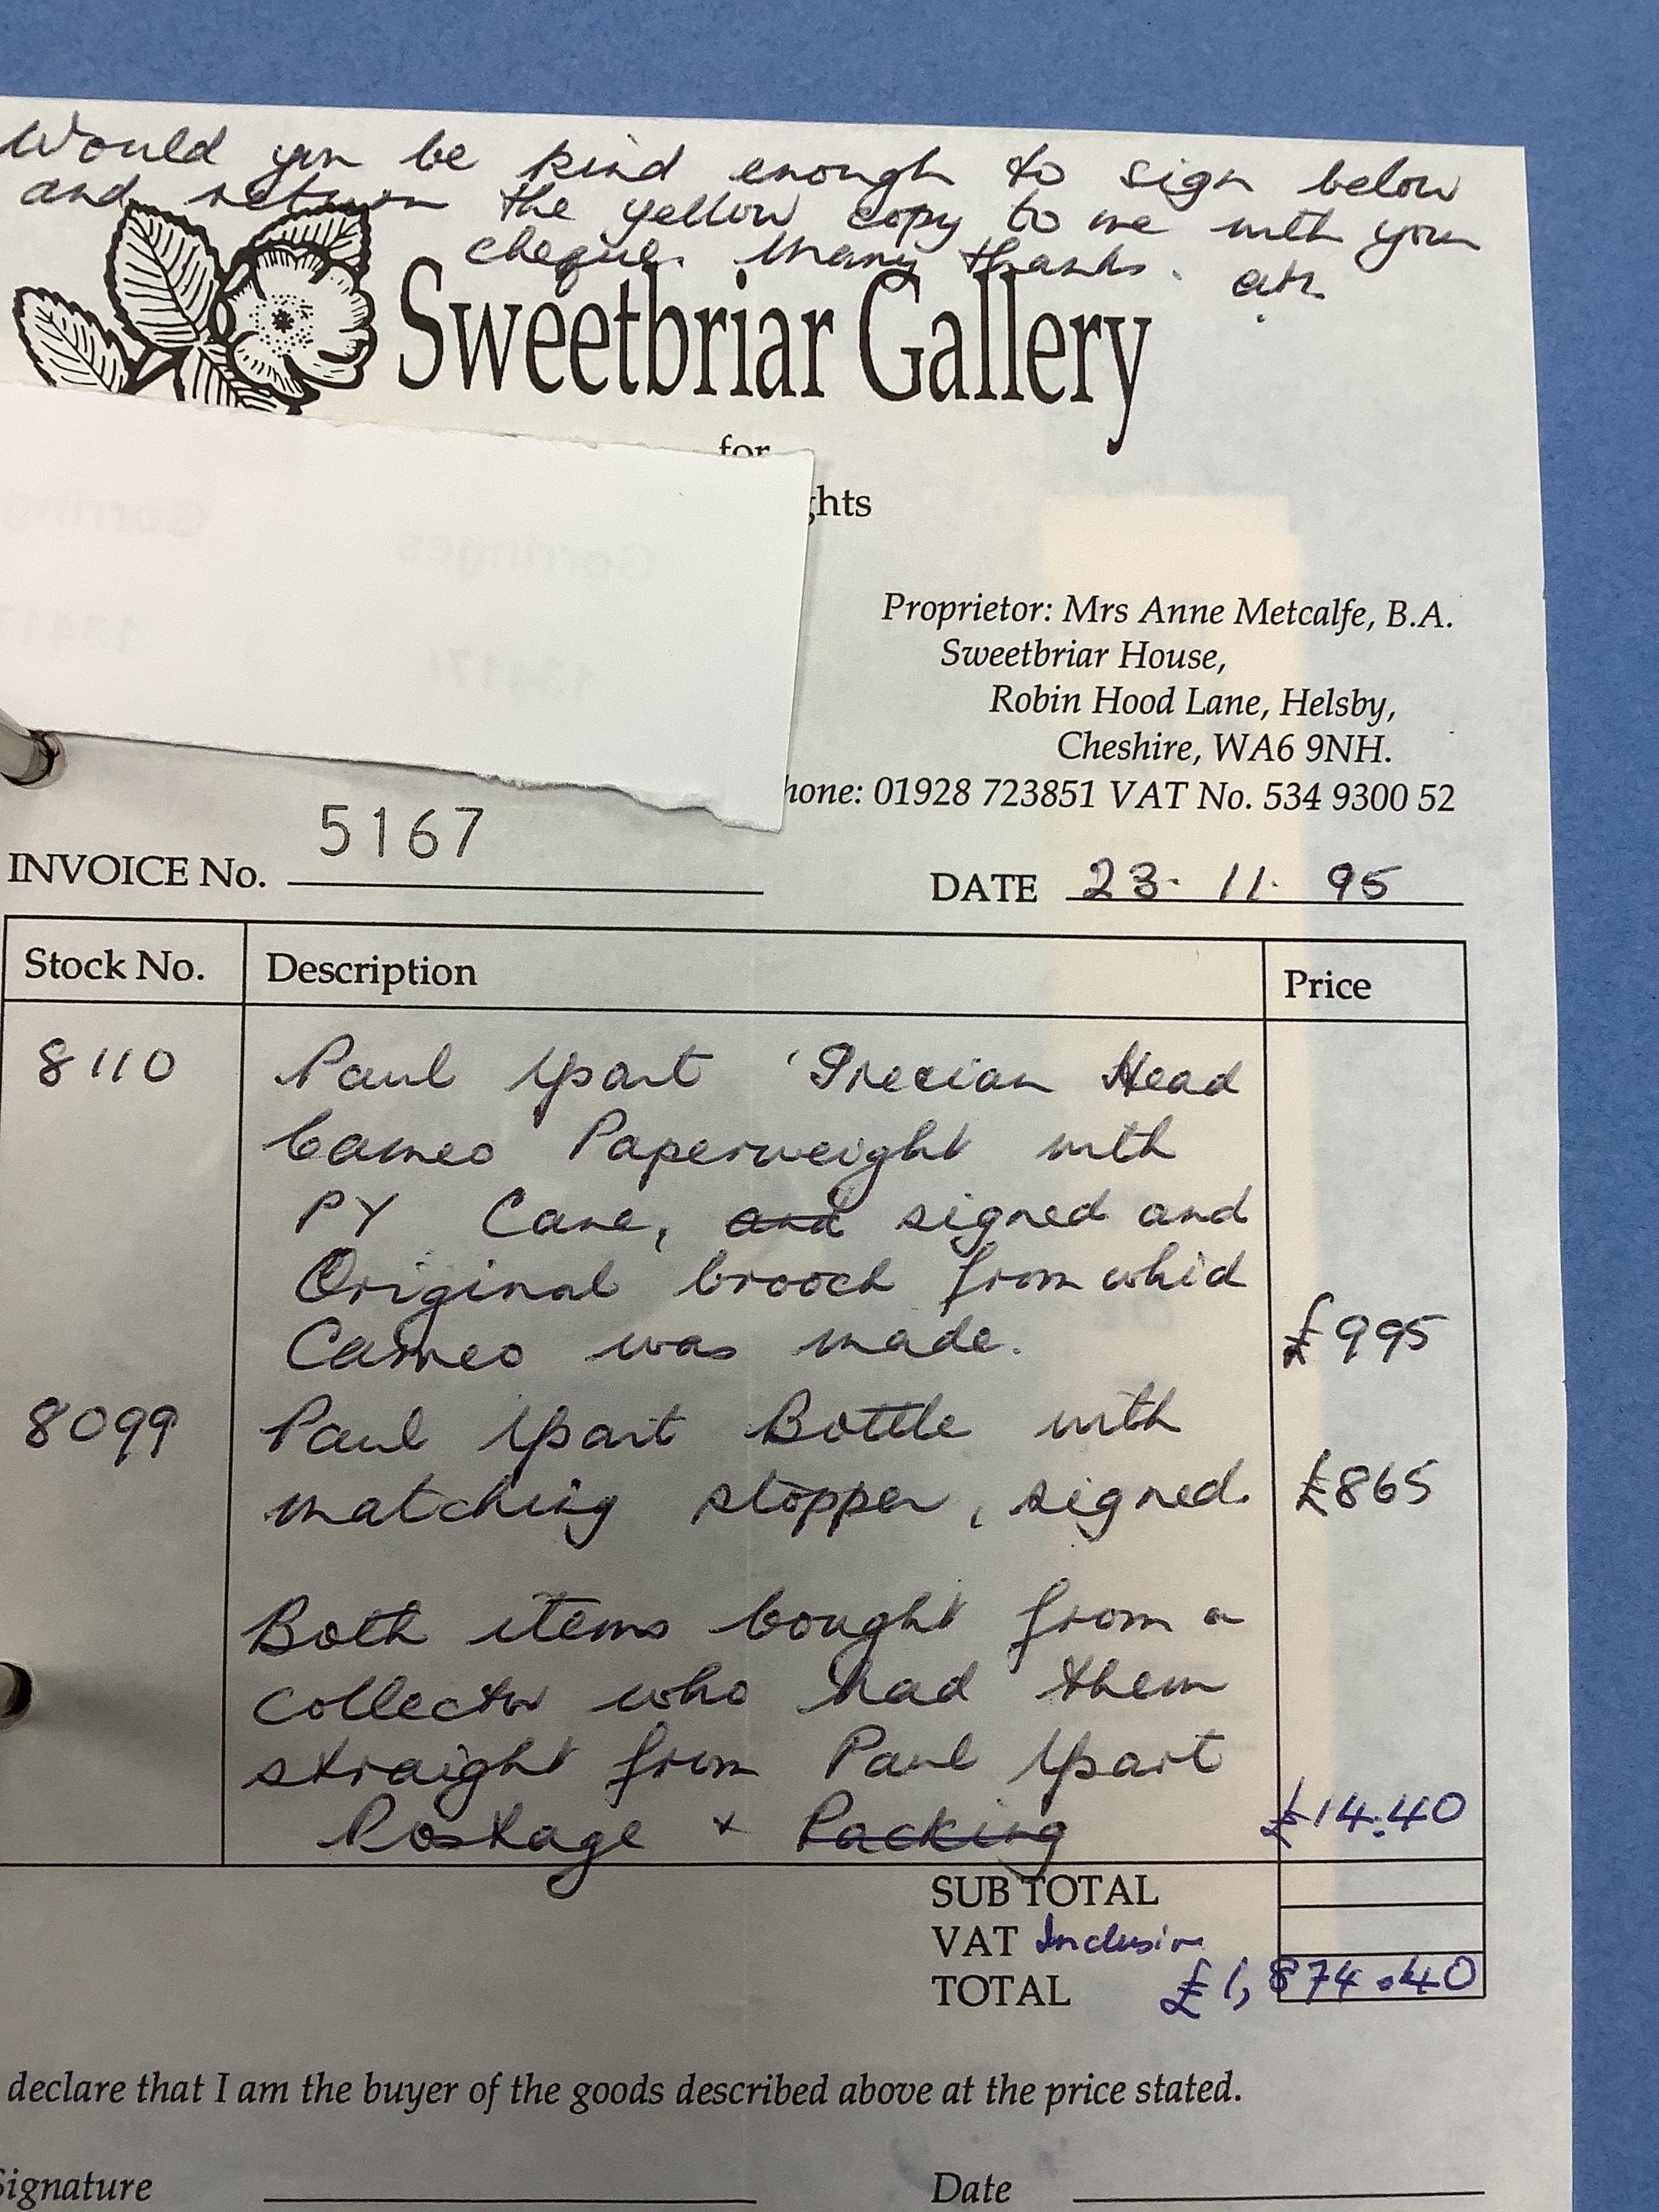 Would you be kind enough to sign below
and return the yellow copy to me with your
cheque. Many thanks. am.
Sweetbriar Gallery
for
ghts
Proprietor: Mrs Anne Metcalfe, B.A.
Sweetbriar House,
Robin Hood Lane, Helsby,
Cheshire, WA6 9NH.
hone: 01928 723851 VAT No. 534 9300 52
INVOICE No. 5167 DATE 23. 11. 95
Stock No. Description Price
8110 Paul Ysart 'Grecian Head
Cameo Paperweight with
PY Cane, and signed and
Original brooch from which
Cameo was made. £995
8099 Paul Ysart Bottle with
matching stopper, signed. £865
Both items bought from a
collector who had them
straight from Paul Ysart
Postage + Packing £14.40
SUB TOTAL
VAT Inclusive
TOTAL £1,874.40
declare that I am the buyer of the goods described above at the price stated.
Signature Date